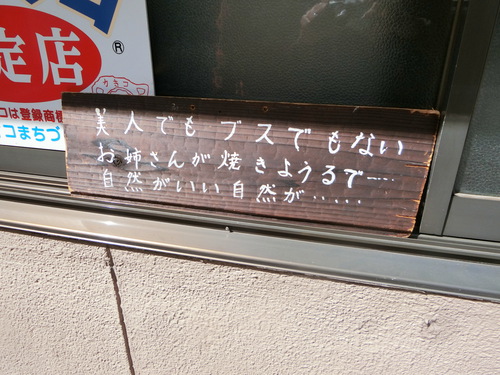 定店
®
コは登録商標
コまちづ
美人でもブスでもない
お姉さんが焼きようるで……
自然がいい自然が・・・・・